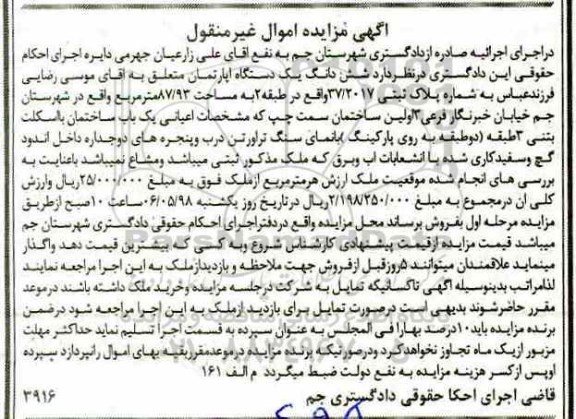 آگهی مزایده اموال غیرمنقول
دراجرای اجرائیه صادره ازدادگستری شهرستان جم به نفع آقای علی زارعیان جهرمی دایره اجرای احکام
حقوقی این دادگستری درنظردارد شش دانگ یک دستگاه آپارتمان متعلق به آقای موسی رضایی
فرزندعباس به شماره پلاک ثبتی ۳۷/۲۰۱۷واقع در طبقه۲به مساحت ۸۷/۹۳مترمربع واقع در شهرستان
جم خیابان خبرنگار فرعی۳اولین ساختمان سمت چپ که مشخصات اعیانی یک باب ساختمان بااسکلت
بتنی ۳طبقه (دوطبقه به روی پارکینگ )بانمای سنگ تراورتن درب وپنجره های دوجداره داخل اندود
گچ وسفیدکاری شده با انشعابات آب وبرق که ملک مذکور ثبتی میباشد ومشاع نمیباشد باعنایت به
بررسی های انجام شده موقعیت ملک ارزش هرمترمربع ازملک فوق به مبلغ ۲۵/۰۰۰/۰۰۰ریال وارزش
کلی آن درمجموع به مبلغ ۲/۱۹۸/۲۵۰/۰۰۰ریال درتاریخ روز یکشنبه ۰۶/۰۵/۹۸ساعت ۱۰صبح ازطریق
مزایده مرحله اول بفروش برساند محل مزایده واقع دردفتراجرای احکام حقوقی دادگستری شهرستان جم
میباشد قیمت مزایده ازقیمت پیشنهادی کارشناس شروع وبه کسی که بیشترین قیمت دهد واگذار
مینماید علاقمندان میتوانند ۵روزقبل ازفروش جهت ملاحظه و بازدیدازملک به این اجرا مراجعه نمایند
لذامراتب بدینوسیله آگهی تاکسانیکه تمایل به شرکت درجلسه مزایده وخرید ملک داشته باشند درموعد
مقرر حاضرشوند بدیهی است درصورت تمایل برای بازدید ازملک به این اجرا مراجعه شود درضمن
برنده مزایده باید۱۰درصد بهارا فی المجلس به عنوان سپرده به قسمت اجرا تسلیم نماید حداکثر مهلت
مزبور ازیک ماه تجاوز نخواهدکرد ودرصورتیکه برنده مزایده درموعدمقرربقیه بهای اموال رانپردازد سپرده
اوپس ازکسر هزینه مزایده به نفع دولت ضبط میگردد م الف ۱۶۱
قاضی اجرای احکا حقوقی دادگستری جم ۳۹۱۶